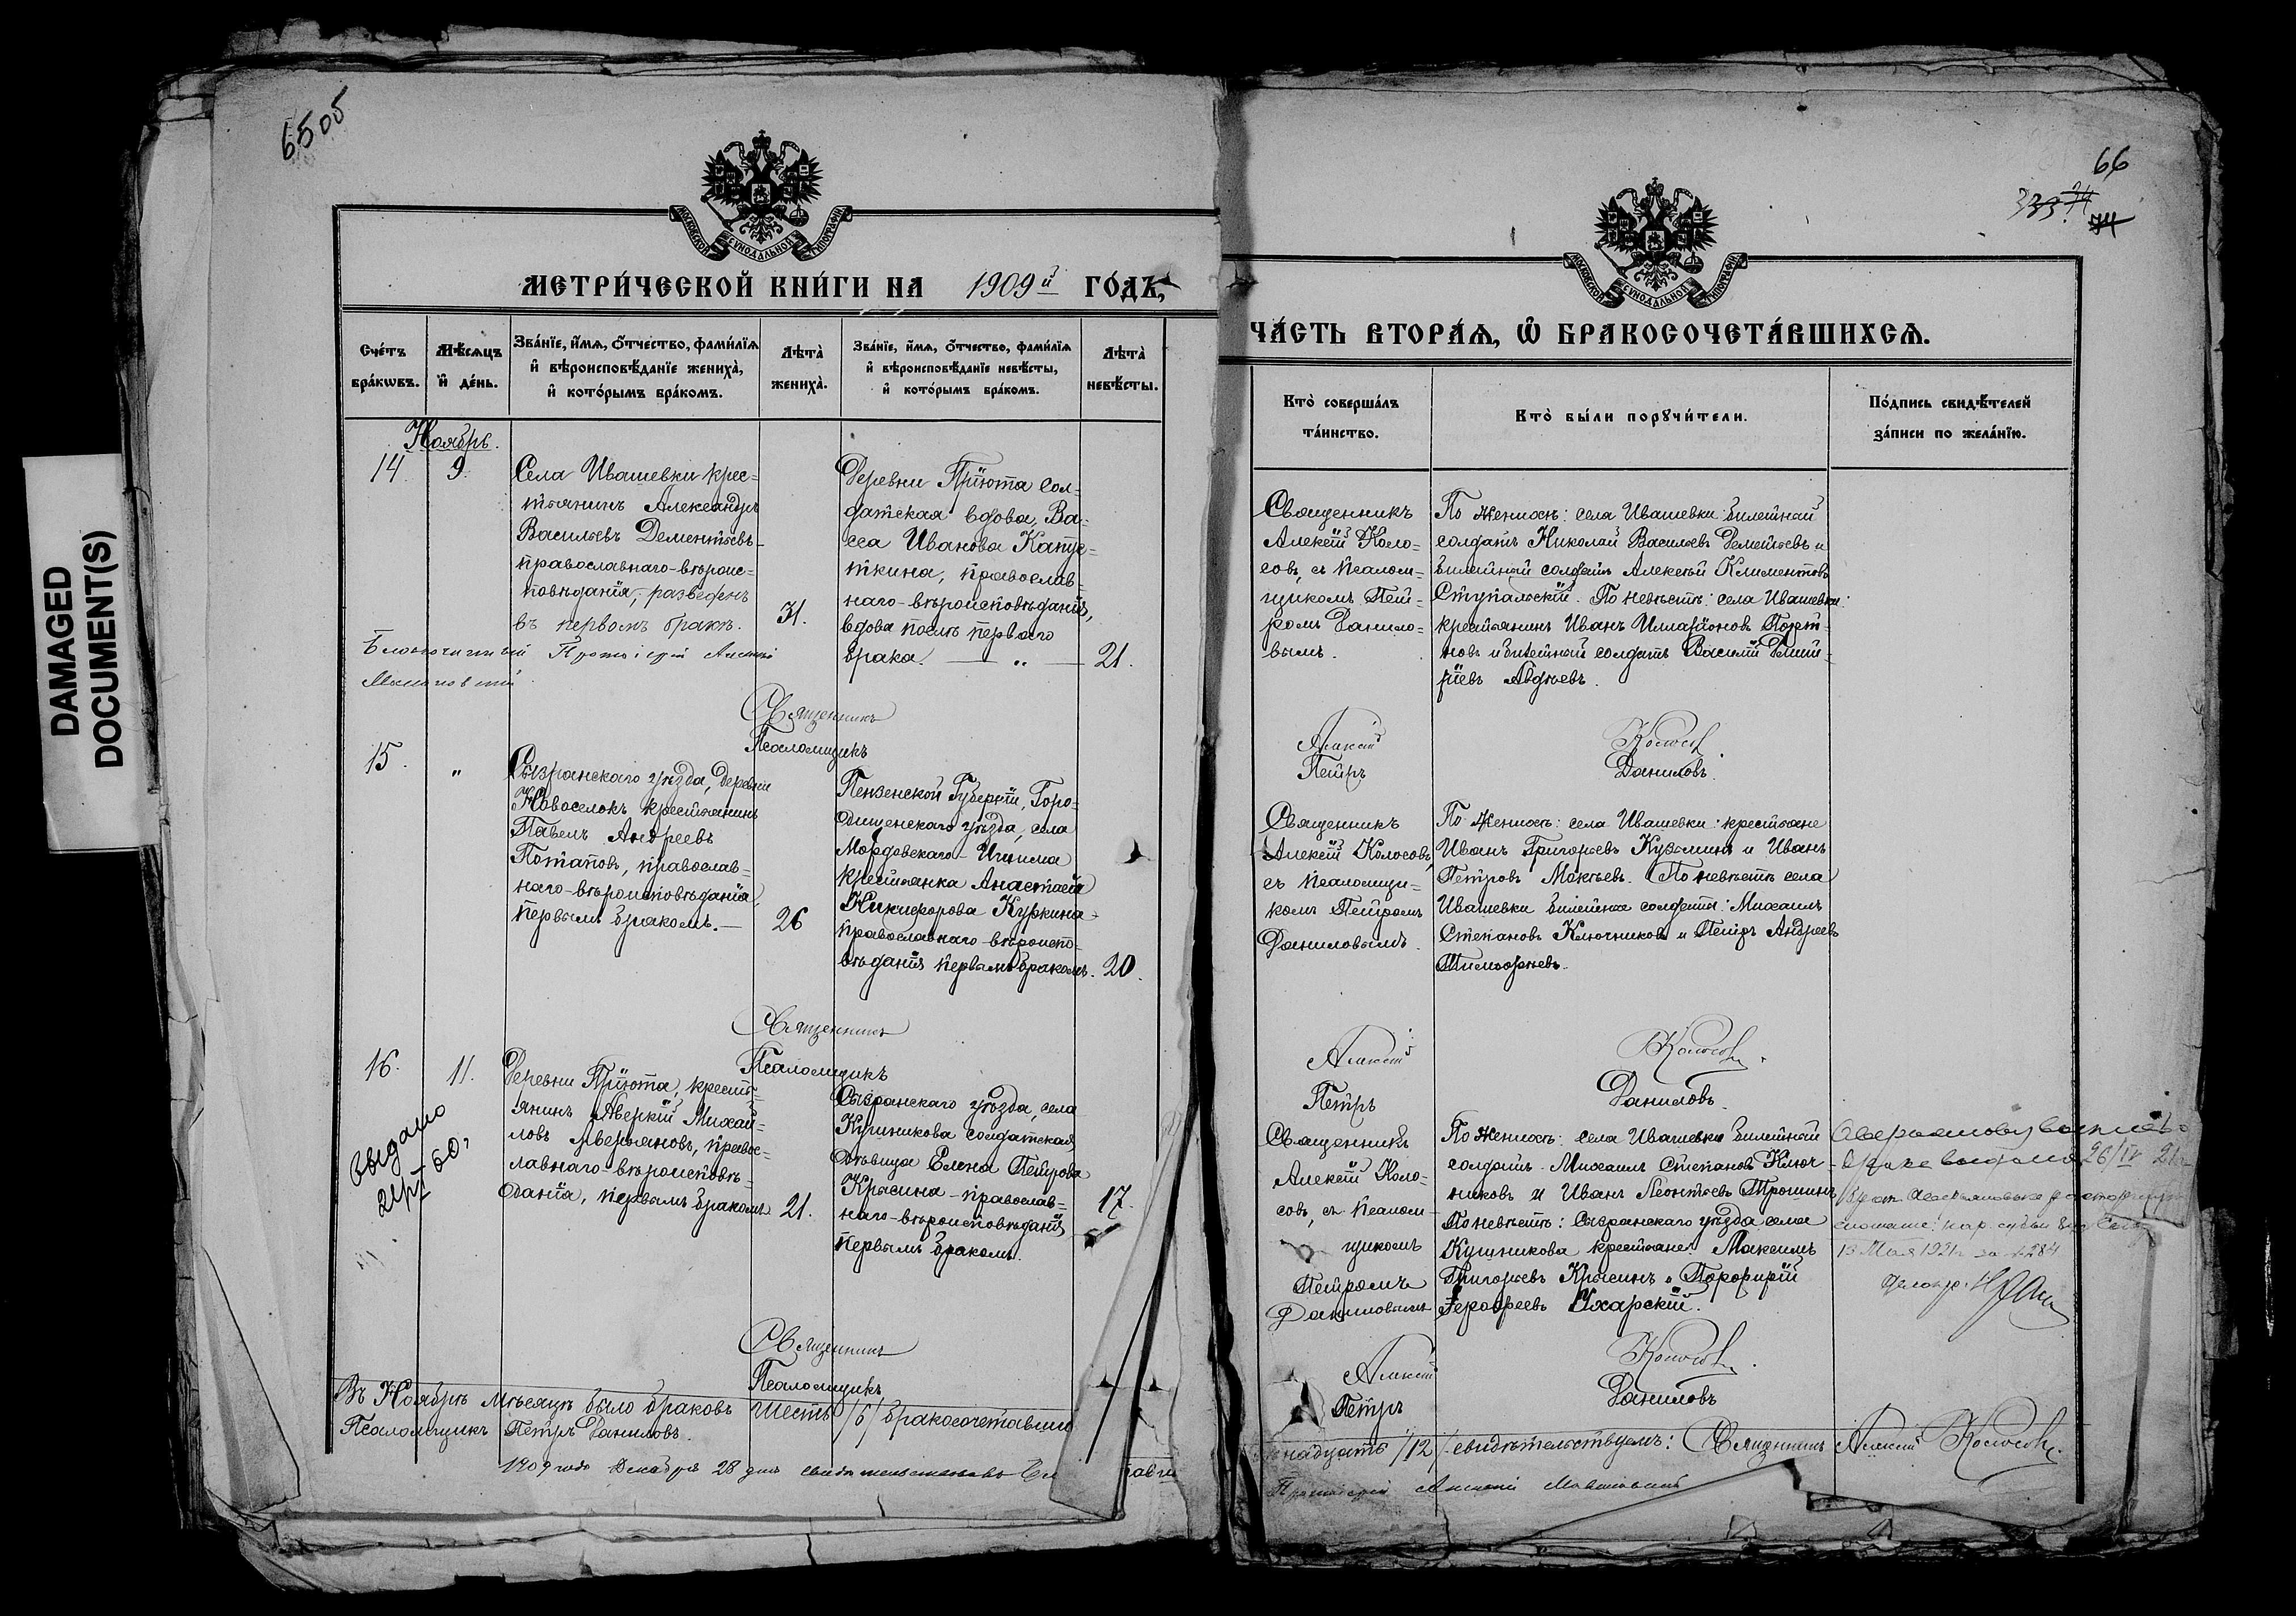 6505
66
DAMAGED
DOCUMENT(S)
МОСКОВСКОЙ СѴНОДАЛЬНОЙ ТИПОГРАФІИ
МЕТРИ́ЧЕСКОЙ КНИ́ГИ НА 1909й ГО́ДЪ,
Сче́тъ бра́кѡвъ.
Мѣ́сяцъ и҆ де́нь.
Зва́нїе, и҆́мѧ, ѻ҆́тчество, фами́лїѧ
и҆ вѣроисповѣ́данїе жениха̀,
и҆ кото́рымъ бра́комъ.
Лѣта̀ жениха̀.
Зва́нїе, и҆́мѧ, ѻ҆́тчество, фами́лїѧ
и҆ вѣроисповѣ́данїе невѣ́сты,
и҆ кото́рымъ бра́комъ.
Лѣта̀ невѣ́сты.
Ноябрь.
14. 9.
Села Ивашевки крес=
тьянинъ Александръ
Васильевъ Дементьевъ
православнаго-вѣроис=
повѣданія, разведенъ
въ первомъ бракѣ. 31.
Деревни Пріюта сол=
датская вдова, Ва=
сса Иванова Капус=
ткина, православ=
наго-вѣроисповѣданія,
вдова послѣ перваго
брака. — „ — 21.
Благочинный Протоіерей Алексій
Священникъ
Псаломщикъ
15. „
Сызранскаго уѣзда, деревни
Новоселокъ крестьянинъ
Павелъ Андреевъ
Потаповъ, православ=
наго-вѣроисповѣданія,
первымъ бракомъ.— 26
Пензенской Губерніи, Горо=
дищенскаго уѣзда, села
Мордовскаго-Ишима
крестьянка Анастасія
Никифорова Куркина
православнаго вѣроиспо=
вѣданія первымъ бракомъ. 20.
Священникъ
Псаломщикъ
16. 11.
Деревни Пріюта, кресть=
янинъ Аверкій Михай=
ловъ Аверьяновъ, правос=
лавнаго-вѣроисповѣ=
данія, первымъ бракомъ 21.
Сызранскаго уѣзда, села
Кушникова солдатская
дѣвица Елена Петрова
Красина-православ=
наго-вѣроисповѣданія
первымъ бракомъ. 17.
выдано
Священникъ
Псаломщикъ
Въ Ноябрѣ мѣсяцѣ было браковъ шесть /6/ бракосочетавши
Псаломщикъ Петръ Даниловъ.
1909 года Декабря 28 дня
ЧА́СТЬ ВТОРА́Ѧ, Ѽ БРАКОСОЧЕТА́ВШИХСѦ.
Кто̀ соверша́лъ
та́инство.
Кто̀ бы́ли порꙋчи́тели.
По́дпись свидѣ́телей
за́писи по жела́нїю.
Священникъ
Алексій Коло=
совъ, съ Псалом=
щикомъ Пет=
ромъ Данило=
вымъ.
По женихѣ: села Ивашевки билетный
солдатъ Николай Васильевъ Дементьевъ и
билетный солдатъ Алексѣй Климентовъ
Ступальскій. По невѣстѣ: села Ивашевки:
крестьянинъ Иванъ Иларіоновъ Порт=
новъ и билетный солдатъ Василій Дмит=
ріевъ Авдѣевъ.
Алексій Колосовъ
Петръ Даниловъ.
Священникъ
Алексій Колосовъ,
съ псаломщи=
комъ Петромъ
Даниловымъ.
По женихѣ: села Ивашевки: крестьяне
Иванъ Григорьевъ Кузьминъ и Иванъ
Петровъ Мокѣевъ. По невѣстѣ села
Ивашевки билетные солдаты: Михаилъ
Степановъ Ключниковъ и Петръ Андреевъ
Тимофѣевъ.
Алексій Колосовъ.
Петръ Даниловъ.
Священникъ
Алексій Коло=
совъ, съ псалом=
щикомъ
Петромъ
Даниловымъ
По женихѣ: села Ивашевки билетный
солдатъ. Михаилъ Степановъ Ключ=
никовъ и Иванъ Леонтьевъ Трошинъ
По невѣстѣ: Сызранскаго уѣзда села
Кушникова крестьяне: Максимъ
Григорьевъ Красинъ и Порфирій
Ухарскій.
13 Мая 192
Алексій Колосовъ.
Петръ Даниловъ
надцать /12/ свидѣтельствуемъ: Священникъ Алексій Колосовъ.
Протоіерей Алексій